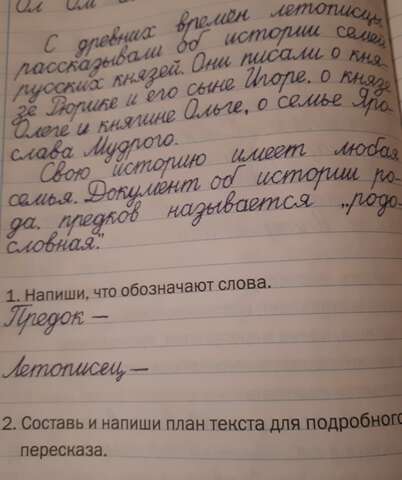 Ол Ом
С древних времён летописцы
рассказывали об истории семей
русских князей. Они писали о кня-
зе Рюрике и его сыне Игоре, о князе
Олеге и княгине Ольге, о семье Яро-
слава Мудрого.
Свою историю имеет любая
семья. Документ об истории ро-
да, предков называется „родо-
словная".
1. Напиши, что обозначают слова.
Предок —
Летописец —
2. Составь и напиши план текста для подробного
пересказа.